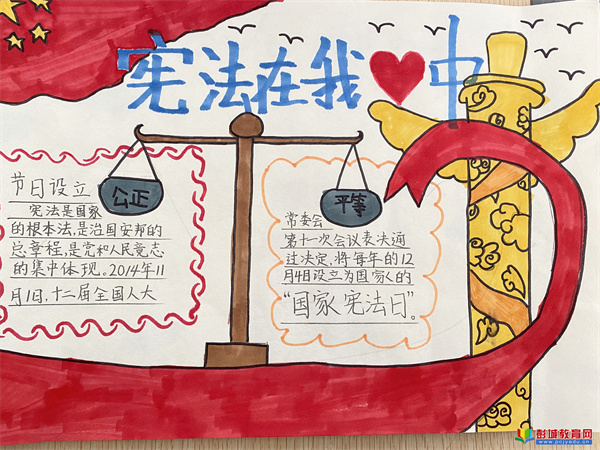 宪法在我❤中
公正
平等
节日设立
宪法是国家
的根本法,是治国安邦的
总章程,是党和人民意志
的集中体现。2014年11
月1日,十二届全国人大
常委会
第十一次会议表决通
过决定,将每年的12
月4日设立为国家的
“国家宪法日”。
彭城教育网
www.pcjyedu.cn